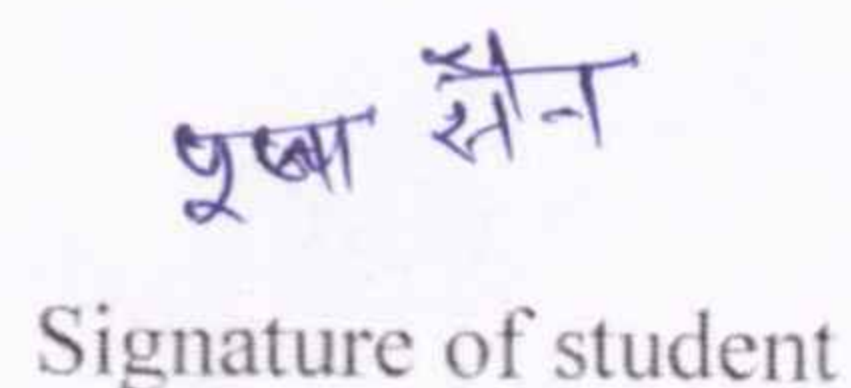 पुष्पा सैन
Signature of student